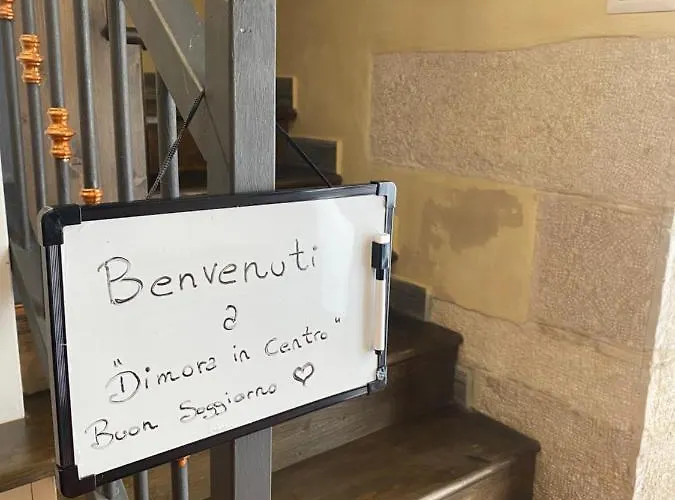 Benvenuti
a
"Dimora in Centro"
Buon Soggiorno ♡